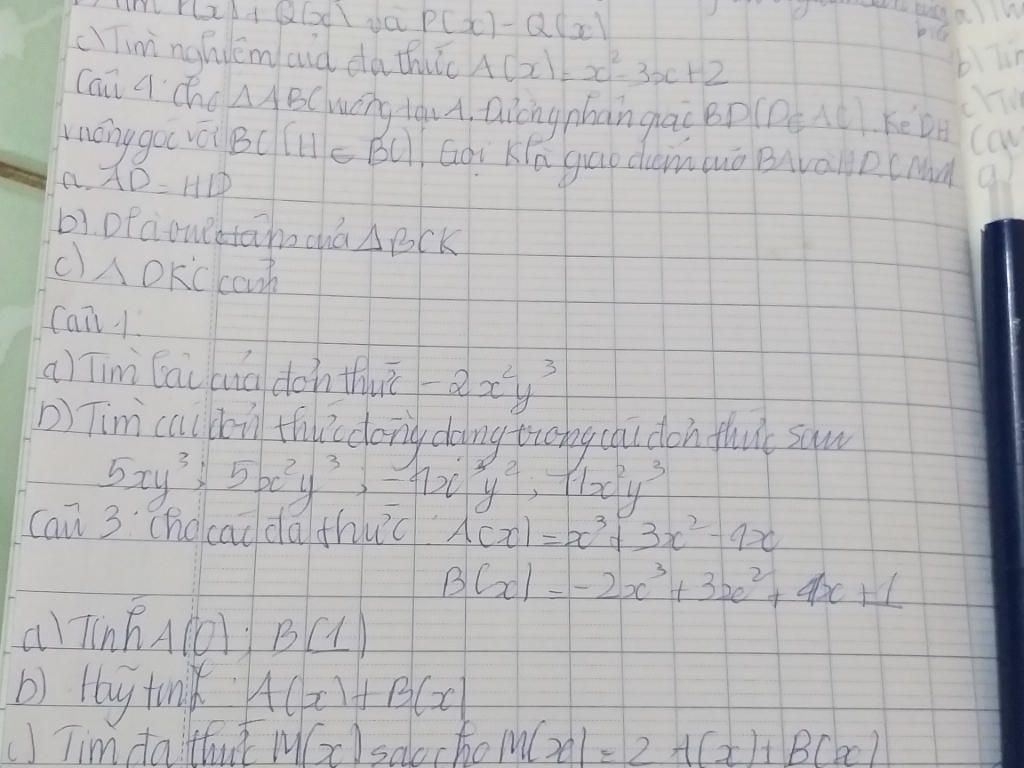 Tìm P(x) + Q(x) và P(x) - Q(x)
c) Tìm nghiệm của đa thức A(x) = x² - 3x + 2
Câu 4. Cho ΔABC vuông tại A. Đường phân giác BD (D ∈ AC). Kẻ DH
vuông góc với BC (H ∈ BC). Gọi K là giao điểm của BA và HD CMinh
a. AD = HD
b). D là trực tâm của ΔBCK
c) ΔDKC cân
Câu 1.
a) Tìm bậc của đơn thức -2x²y³
b) Tìm các đơn thức đồng dạng trong các đơn thức sau
5xy³; 5x²y³; -4x³y²; 11x²y³
Câu 3: Cho các đa thức A(x) = x³ + 3x² - 4x
B(x) = -2x³ + 3x² + 4x + 1
a) Tính A(0); B(1)
b) Hãy tính A(x) + B(x)
c) Tìm đa thức M(x) sao cho M(x) = 2A(x) + B(x)
a)
b) Tìm
c) Tìm
Câu
a)